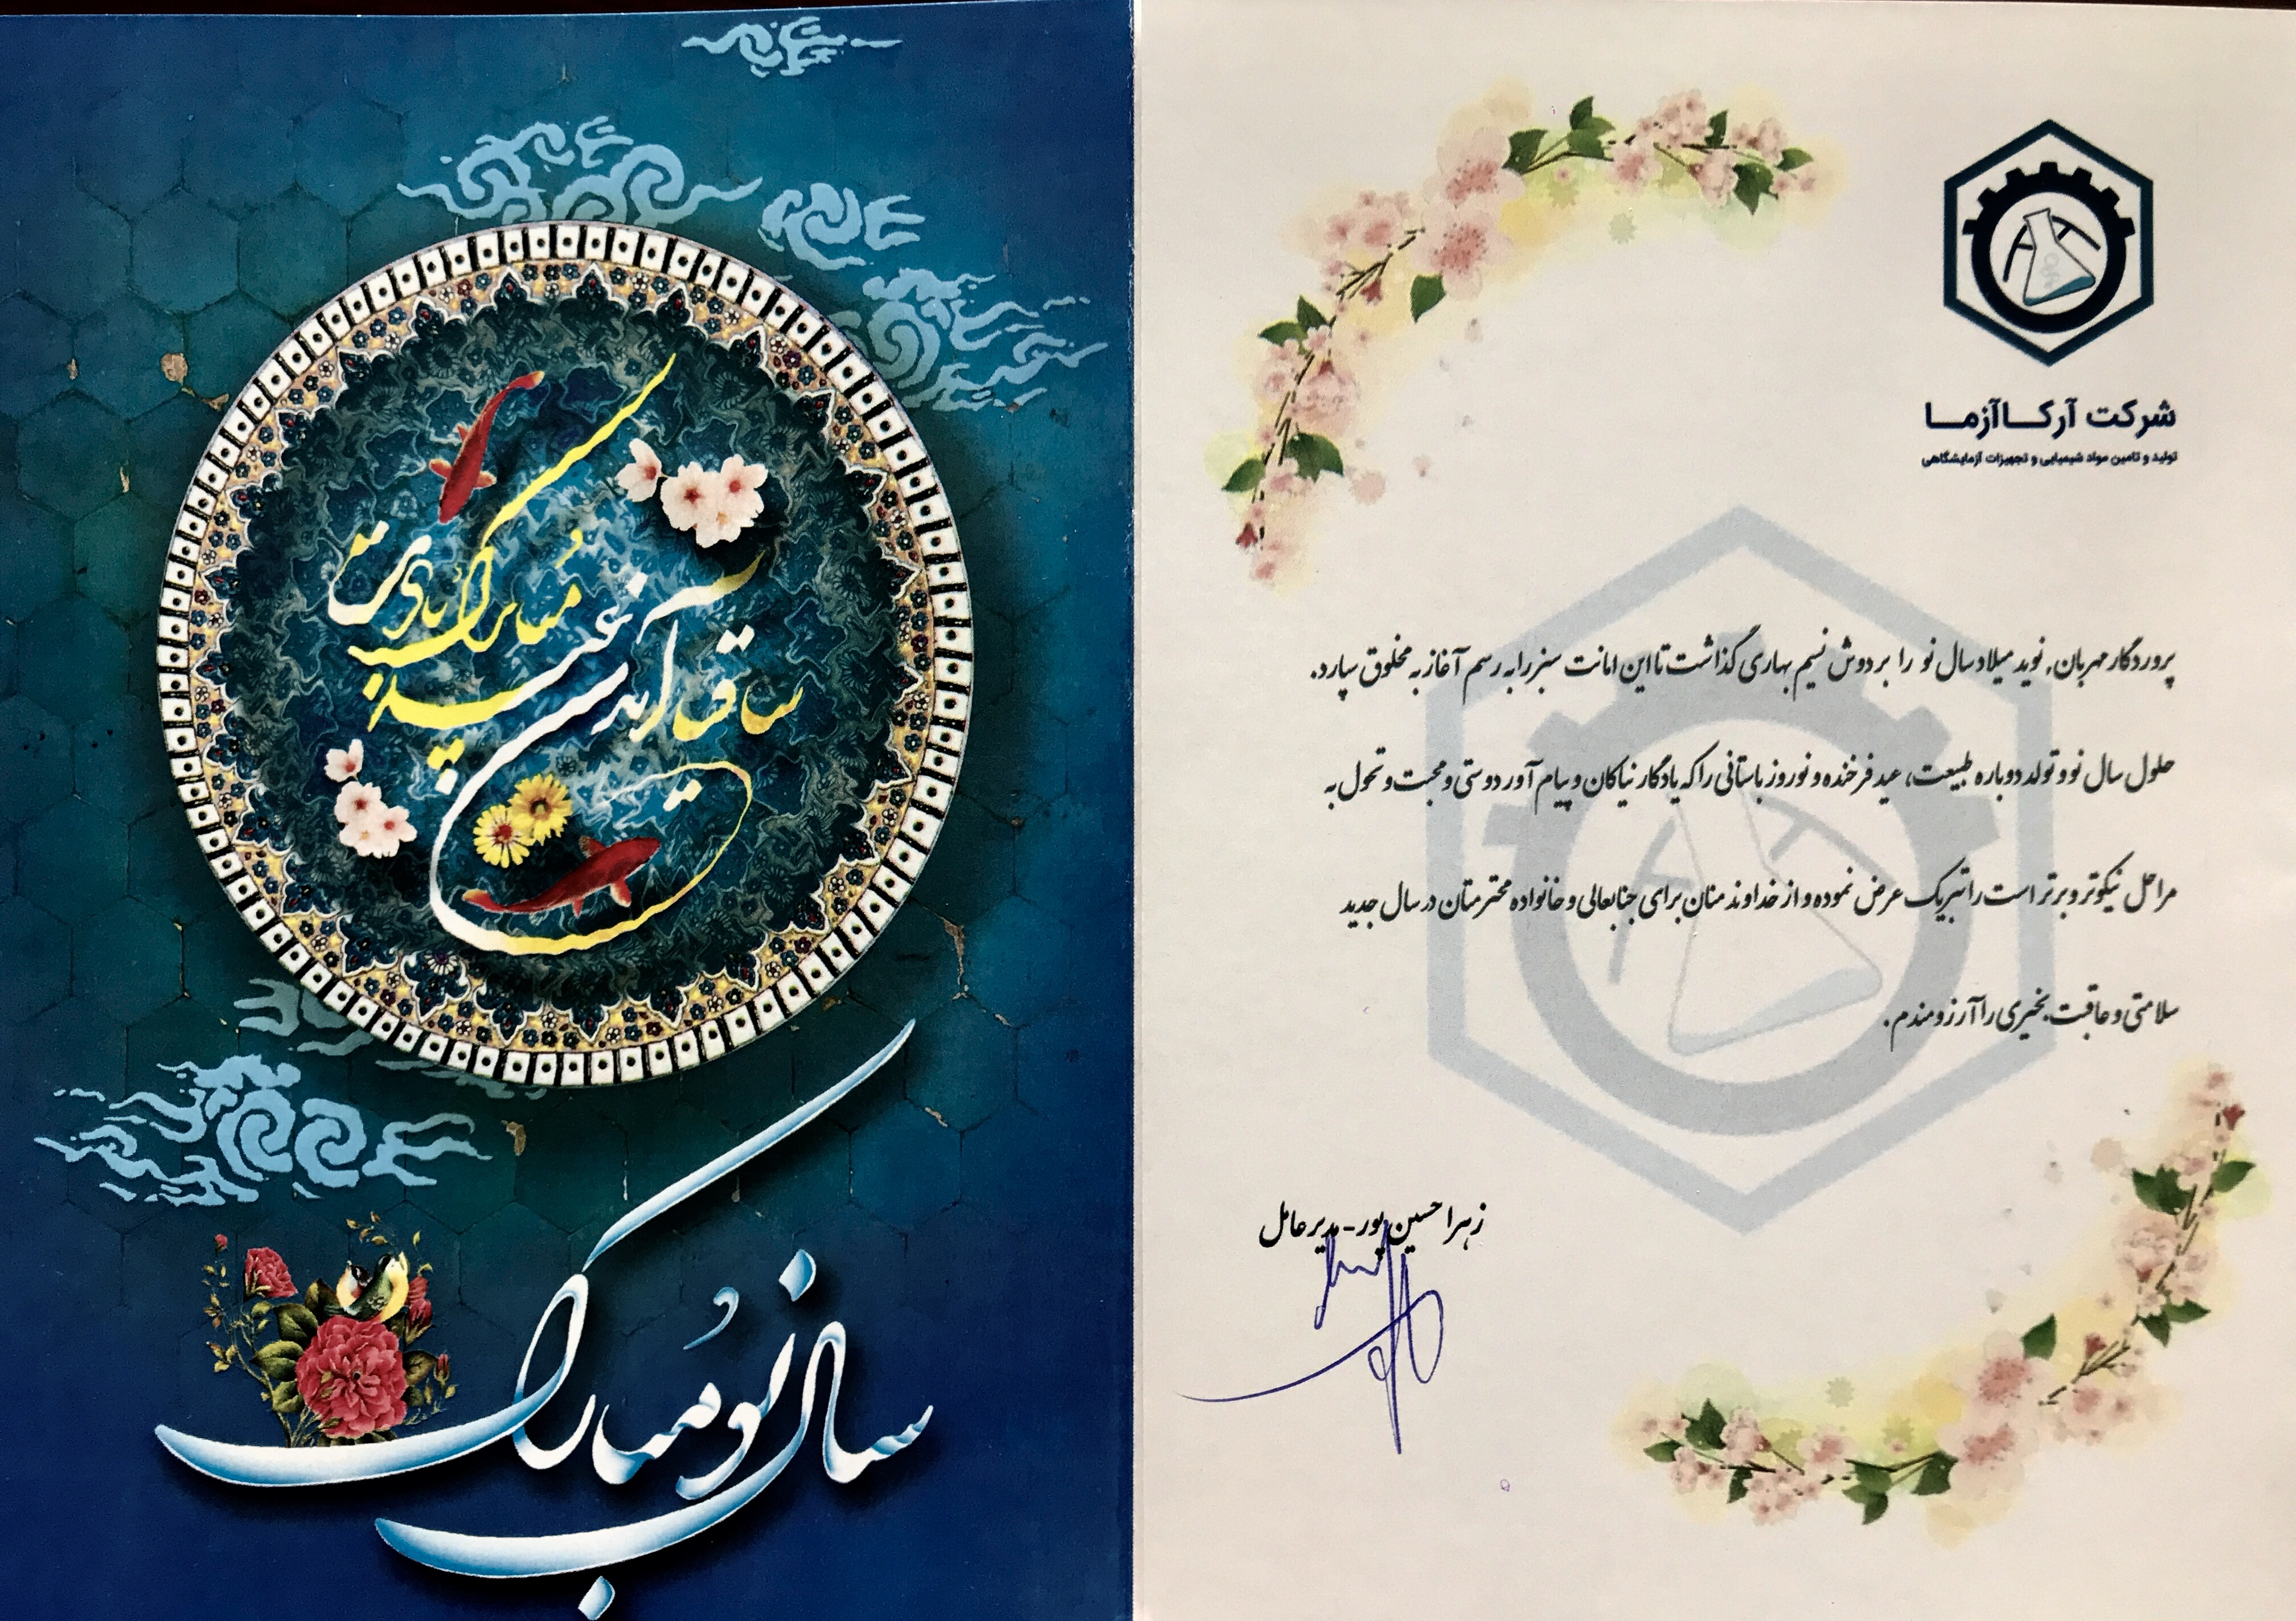 ساقیا آمدن عید مبارک بادت
سال نو مبارک
شرکت آرکاآزما
تولید و تامین مواد شیمیایی و تجهیزات آزمایشگاهی
پروردگار مهربان، نوید میلاد سال نو را بر دوش نسیم بهاری گذاشت تا این امانت سبز را به رسم آغاز به مخلوق سپارد.
حلول سال نو و تولد دوباره طبیعت، عید فرخنده و نوروز باستانی را که یادگار نیاکان و پیام آور دوستی و محبت و تحول به
مراحل نیکوتر و برتر است را تبریک عرض نموده و از خداوند منان برای جنابعالی و خانواده محترمتان در سال جدید
سلامتی و عاقبت بخیری را آرزومندم.
زهرا حسین پور - مدیر عامل